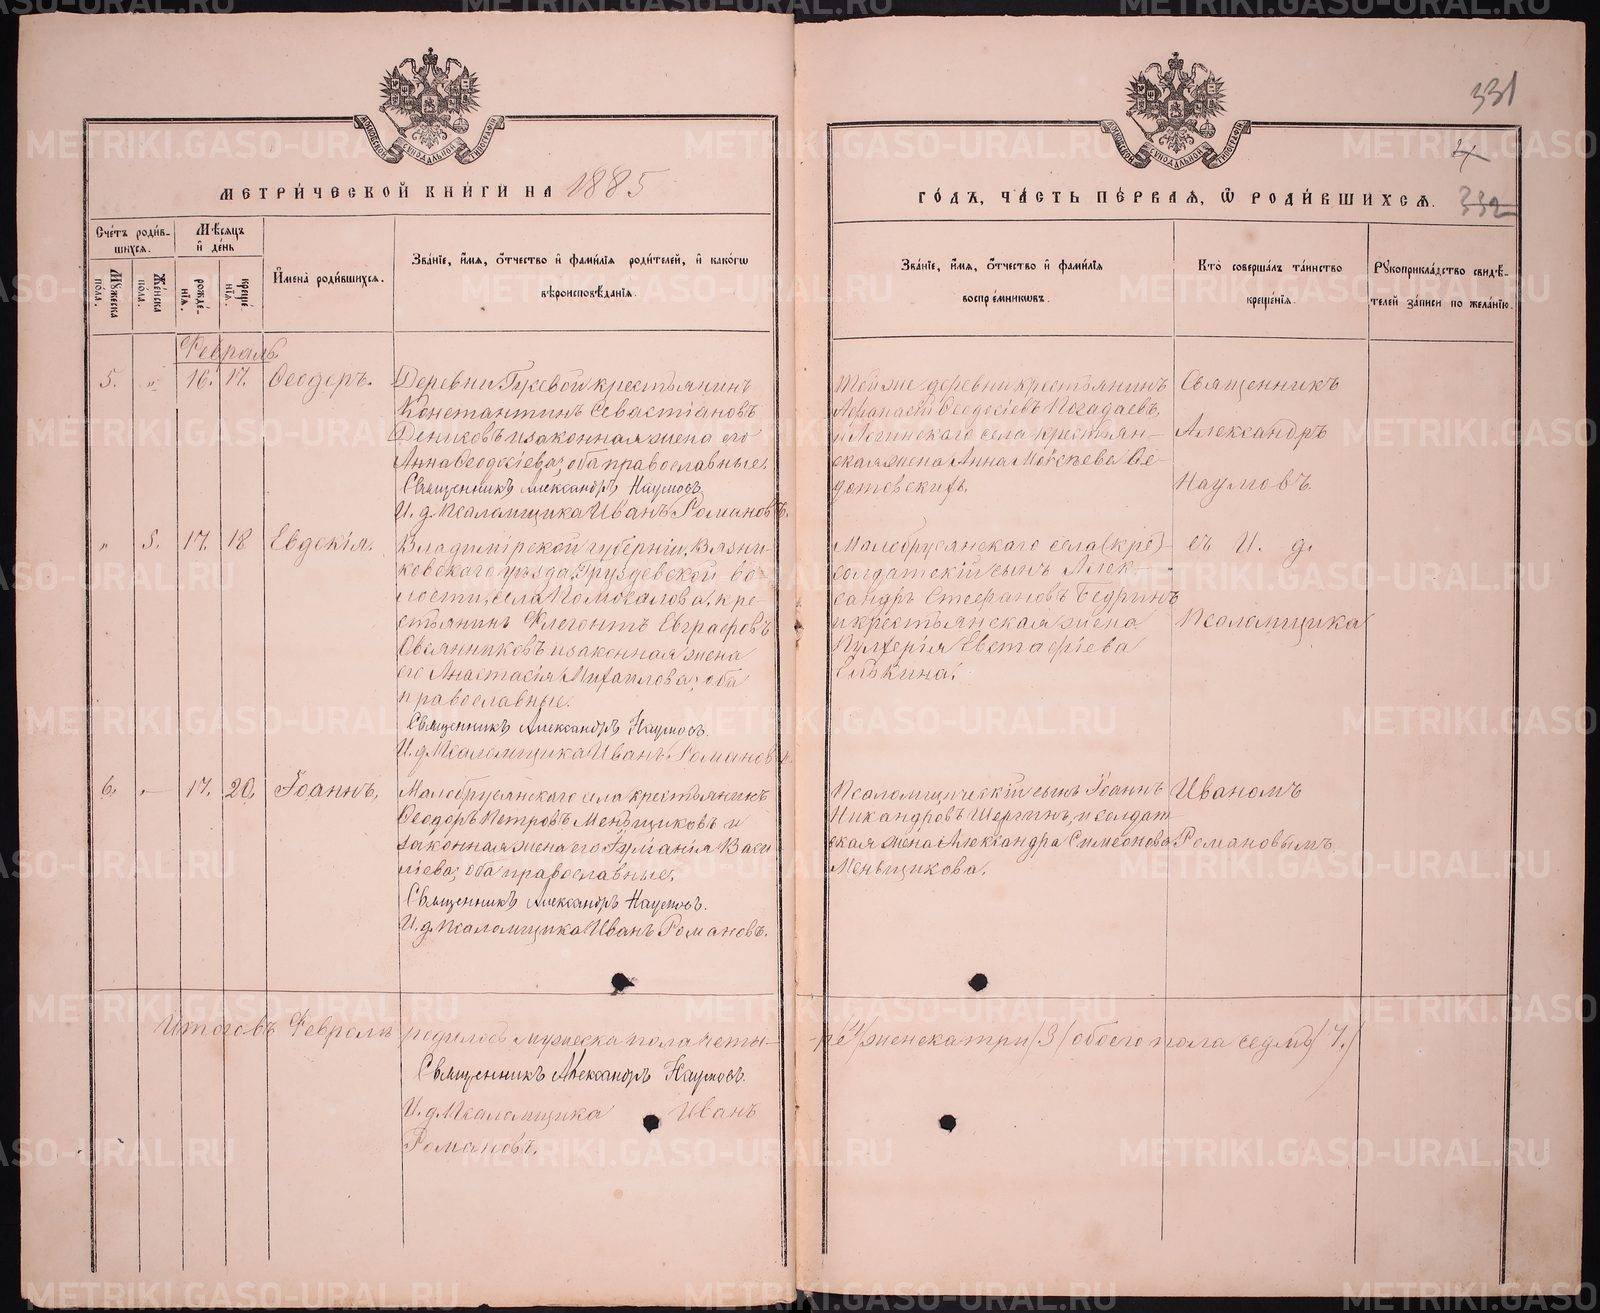 331
4
332
ДУХОВНОЙ СУНОДАЛЬНОЙ ТИПОГРАФІИ
МЕТРИ́ЧЕСКОЙ КНИ́ГИ НА 1885
ГО́ДЪ, ЧА́СТЬ ПЕ́РВАѦ, Ѡ РОДИ́ВШИХСѦ.
Сче́тъ роди́в-
шихсѧ.
Мꙋ́жеска пола.
Же́нска пола.
Мѣ́сѧцъ и̑ де́нь
рожде́-
нїѧ.
креще́-
нїѧ.
И̑мена̀ роди́вшихсѧ.
Зва́нїе, и̑́мѧ, ѻ҆́тчество и̑ фами́лїѧ роди́телей, и̑ како́гѡ
вѣроисповѣ́данїѧ.
Зва́нїе, и̑́мѧ, ѻ҆́тчество и̑ фами́лїѧ
воспрїе́мникѡвъ.
Кто̀ соверша́лъ та́инство
креще́нїѧ.
Рꙋкоприкла́дство свидѣ́-
телей за́писи по жела́нїю.
Февраль
5. „ 16. 17. Ѳеодоръ.
Деревни Гусевой крестьянинъ
Константинъ Севастіановъ
Дениковъ и законная жена его
Анна Ѳеодосіева; оба православные.
Священникъ Александръ Наумовъ.
И. д. Псаломщика Иванъ Романовъ.
Той же деревни крестьянинъ
Аѳанасій Ѳеодосіевъ Погадаевъ,
и Логинскаго села крестьян-
ская жена Анна Моѵсеева Ѳе-
дотовскихъ.
Священникъ
Александръ
Наумовъ
„ 5. 17. 18 Евдокія.
Владимірской губерніи, Вязни-
ковскаго уѣзда, Груздевской во-
лости, села Помогалова, кре-
стьянинъ Флегонтъ Евграфовъ
Овсянниковъ и законная жена
его Анастасія Михаилова; оба
православные.
Священникъ Александръ Наумовъ.
И. д. Псаломщика Иванъ Романовъ.
Малобрусянскаго села (кре)-
солдатскій сынъ Алек-
сандръ Стефановъ Бедринъ
и крестьянская жена
Пульхерія Евстафіева
Елькина.
съ И. д.
Псаломщика
6. „ 17. 20. Іоаннъ.
Малобрусянскаго села крестьянинъ
Ѳеодоръ Петровъ Меньщиковъ и
законная жена его Іуліанія Васи-
ліева; оба православные.
Священникъ Александръ Наумовъ.
И. д. Псаломщика Иванъ Романовъ.
Псаломщическій сынъ Іоаннъ
Никандровъ Шергинъ, и солдат-
ская жена Александра Симеонова
Меньщикова.
Иваномъ
Романовымъ
Итого въ Февралѣ родилось мужеска пола четы-
ре /4/ женска три /3/ обоего пола семь /7./
Священникъ Александръ Наумовъ.
И. д. Псаломщика Иванъ
Романовъ.
METRIKI.GASO-URAL.RU